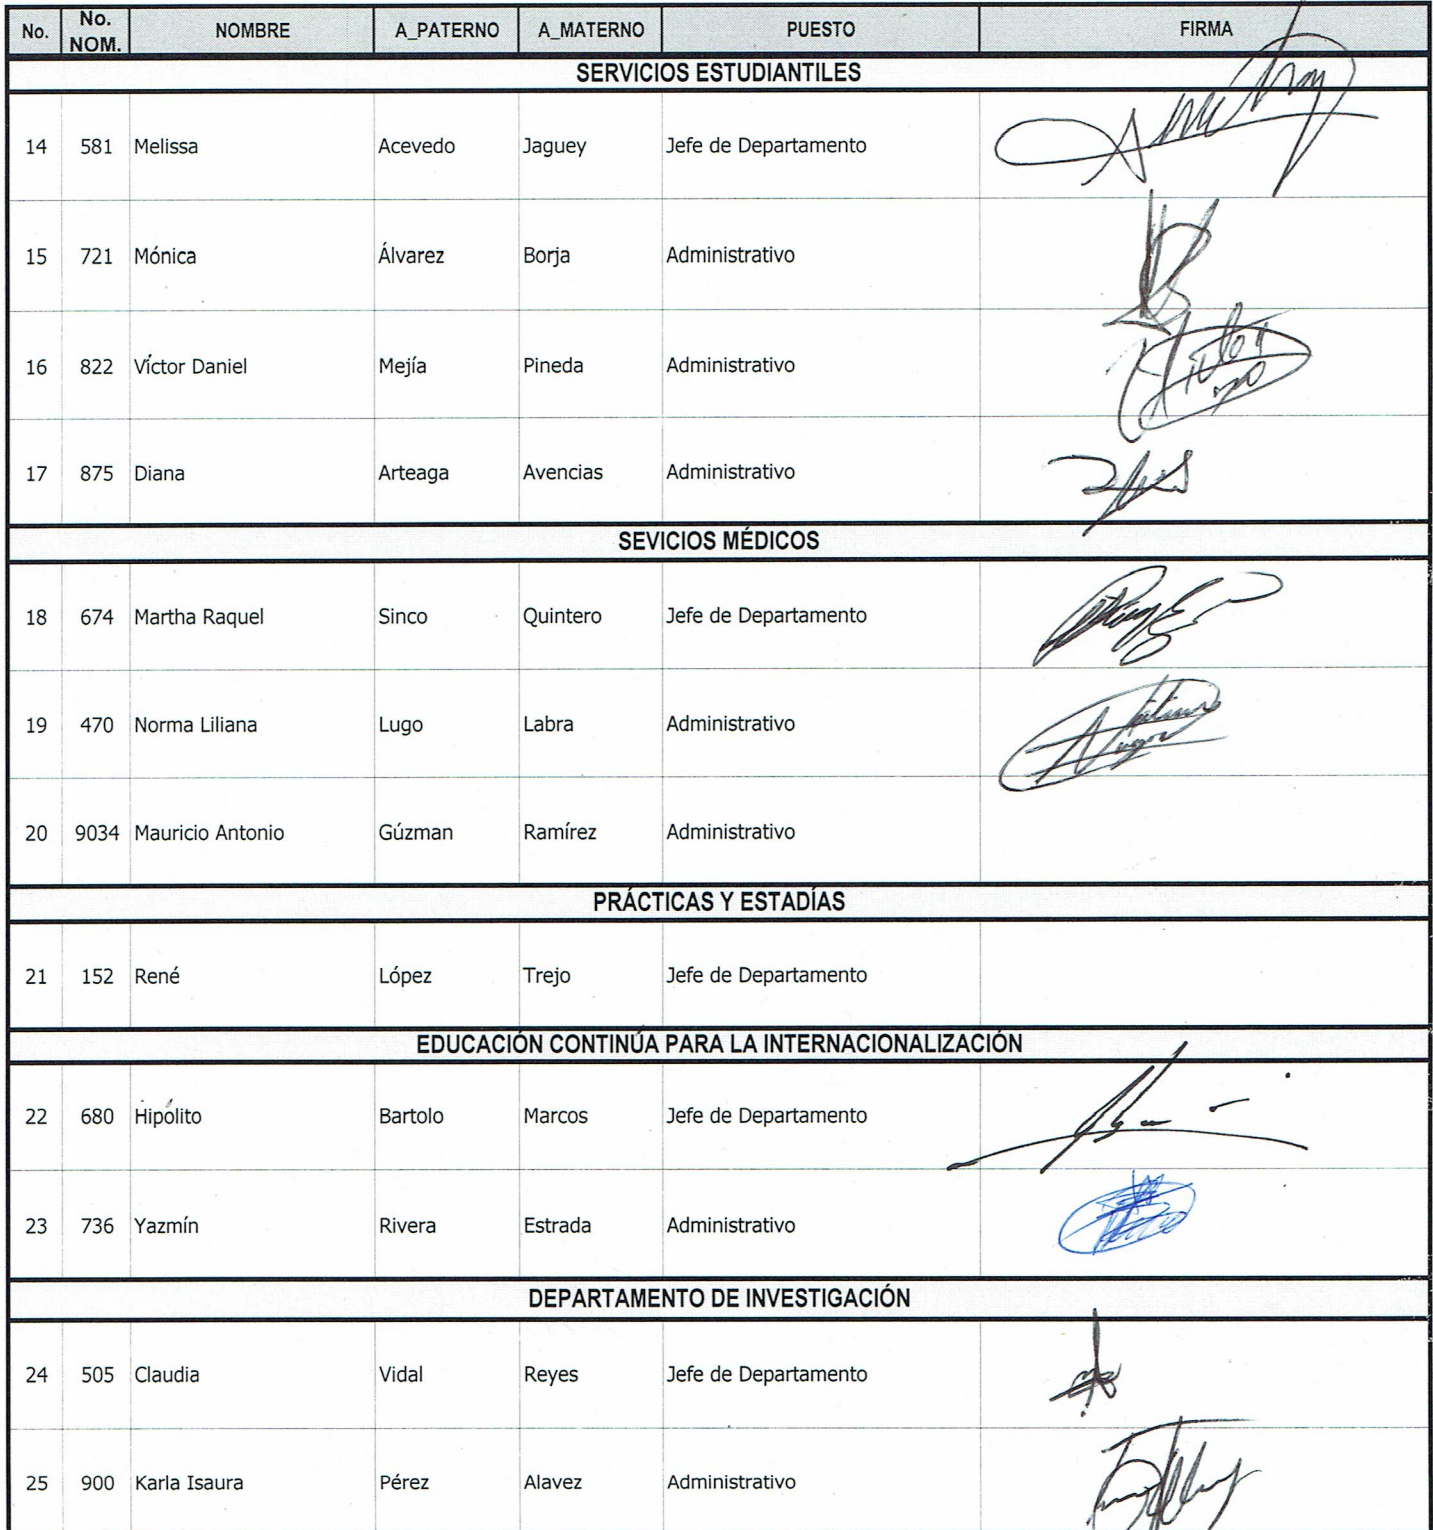 No. No. NOM. NOMBRE A_PATERNO A_MATERNO PUESTO FIRMA
SERVICIOS ESTUDIANTILES
14 581 Melissa Acevedo Jaguey Jefe de Departamento
15 721 Mónica Álvarez Borja Administrativo
16 822 Víctor Daniel Mejía Pineda Administrativo
17 875 Diana Arteaga Avencias Administrativo
SEVICIOS MÉDICOS
18 674 Martha Raquel Sinco Quintero Jefe de Departamento
19 470 Norma Liliana Lugo Labra Administrativo
20 9034 Mauricio Antonio Gúzman Ramírez Administrativo
PRÁCTICAS Y ESTADÍAS
21 152 René López Trejo Jefe de Departamento
EDUCACIÓN CONTINÚA PARA LA INTERNACIONALIZACIÓN
22 680 Hipólito Bartolo Marcos Jefe de Departamento
23 736 Yazmín Rivera Estrada Administrativo
DEPARTAMENTO DE INVESTIGACIÓN
24 505 Claudia Vidal Reyes Jefe de Departamento
25 900 Karla Isaura Pérez Alavez Administrativo